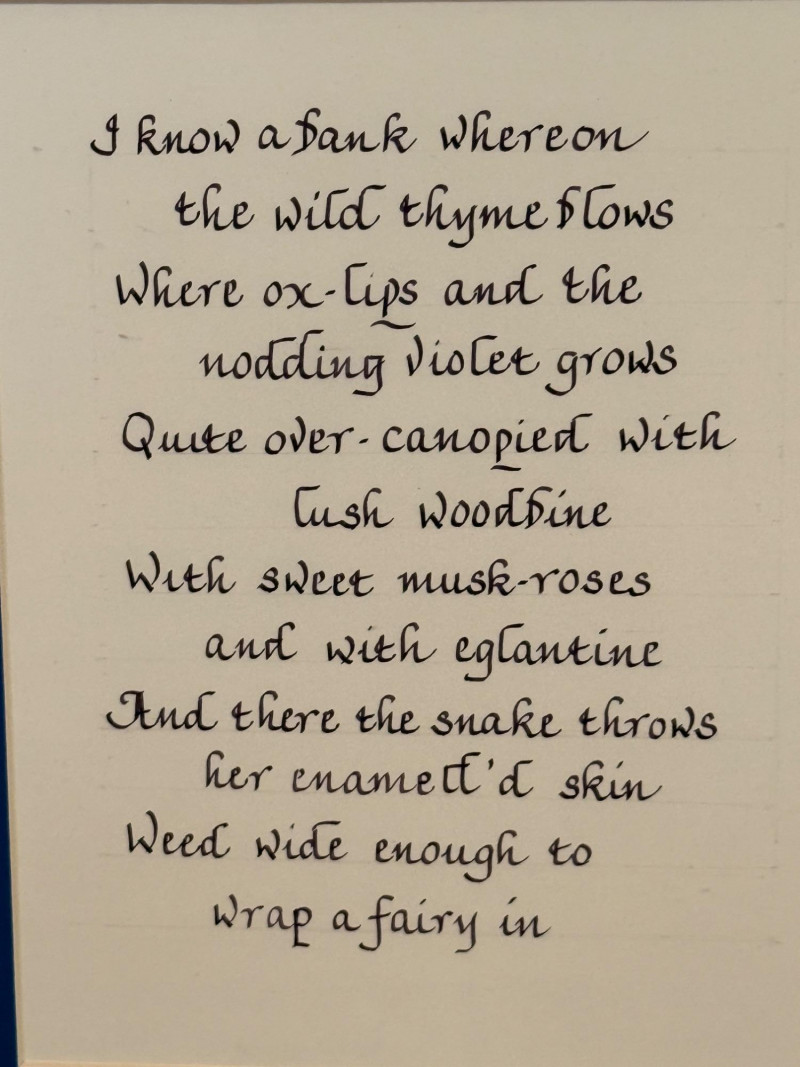 I know a bank whereon
the wild thyme blows
Where ox-lips and the
nodding violet grows
Quite over-canopied with
lush woodbine
With sweet musk-roses
and with eglantine
And there the snake throws
her enamell'd skin
Weed wide enough to
wrap a fairy in